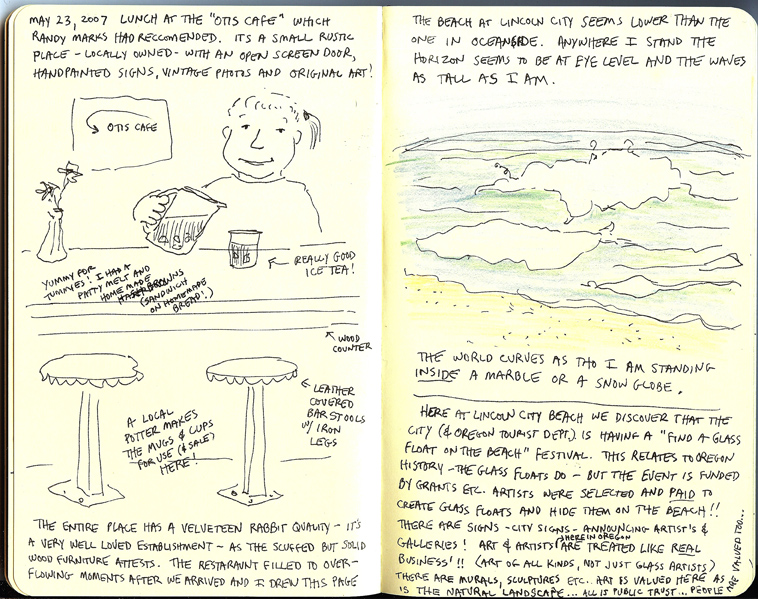 MAY 23, 2007 LUNCH AT THE "OTIS CAFE" WHICH
RANDY MARKS HAD RECCOMENDED. IT'S A SMALL RUSTIC
PLACE - LOCALLY OWNED - WITH AN OPEN SCREEN DOOR,
HANDPAINTED SIGNS, VINTAGE PHOTOS AND ORIGINAL ART!
OTIS CAFE
REALLY GOOD
ICE TEA!
YUMMY FOR
TUMMYS! I HAD A
PATTY MELT AND
HOMEMADE
HASHBROWNS
(SANDWICH
ON HOMEMADE
BREAD!)
WOOD
COUNTER
LEATHER
COVERED
BARSTOOLS
W/ IRON
LEGS
A LOCAL
POTTER MAKES
THE MUGS & CUPS
FOR USE (& SALE)
HERE!
THE ENTIRE PLACE HAS A VELVETEEN RABBIT QUALITY - IT'S
A VERY WELL LOVED ESTABLISHMENT - AS THE SCUFFED BUT SOLID
WOOD FURNITURE ATTESTS. THE RESTARAUNT FILLED TO OVER-
FLOWING MOMENTS AFTER WE ARRIVED AND I DREW THIS PAGE
THE BEACH AT LINCOLN CITY SEEMS LOWER THAN THE
ONE IN OCEANSIDE. ANYWHERE I STAND THE
HORIZON SEEMS TO BE AT EYE LEVEL AND THE WAVES
AS TALL AS I AM.
THE WORLD CURVES AS THO I AM STANDING
INSIDE A MARBLE OR A SNOW GLOBE.
HERE AT LINCOLN CITY BEACH WE DISCOVER THAT THE
CITY (& OREGON TOURIST DEPT.) IS HAVING A "FIND A GLASS
FLOAT ON THE BEACH" FESTIVAL. THIS RELATES TO OREGON
HISTORY - THE GLASS FLOATS DO - BUT THE EVENT IS FUNDED
BY GRANTS ETC. ARTISTS WERE SELECTED AND PAID TO
CREATE GLASS FLOATS AND HIDE THEM ON THE BEACH!!
THERE ARE SIGNS - CITY SIGNS - ANNOUNCING ARTIST'S &
GALLERIES! ART & ARTISTS HERE IN OREGON ARE TREATED LIKE REAL
BUSINESS!!! (ART OF ALL KINDS, NOT JUST GLASS ARTISTS)
THERE ARE MURALS, SCULPTURES ETC. ART IS VALUED HERE AS
IS THE NATURAL LANDSCAPE... ALL IS PUBLIC TRUST... PEOPLE
ARE VALUED TOO...